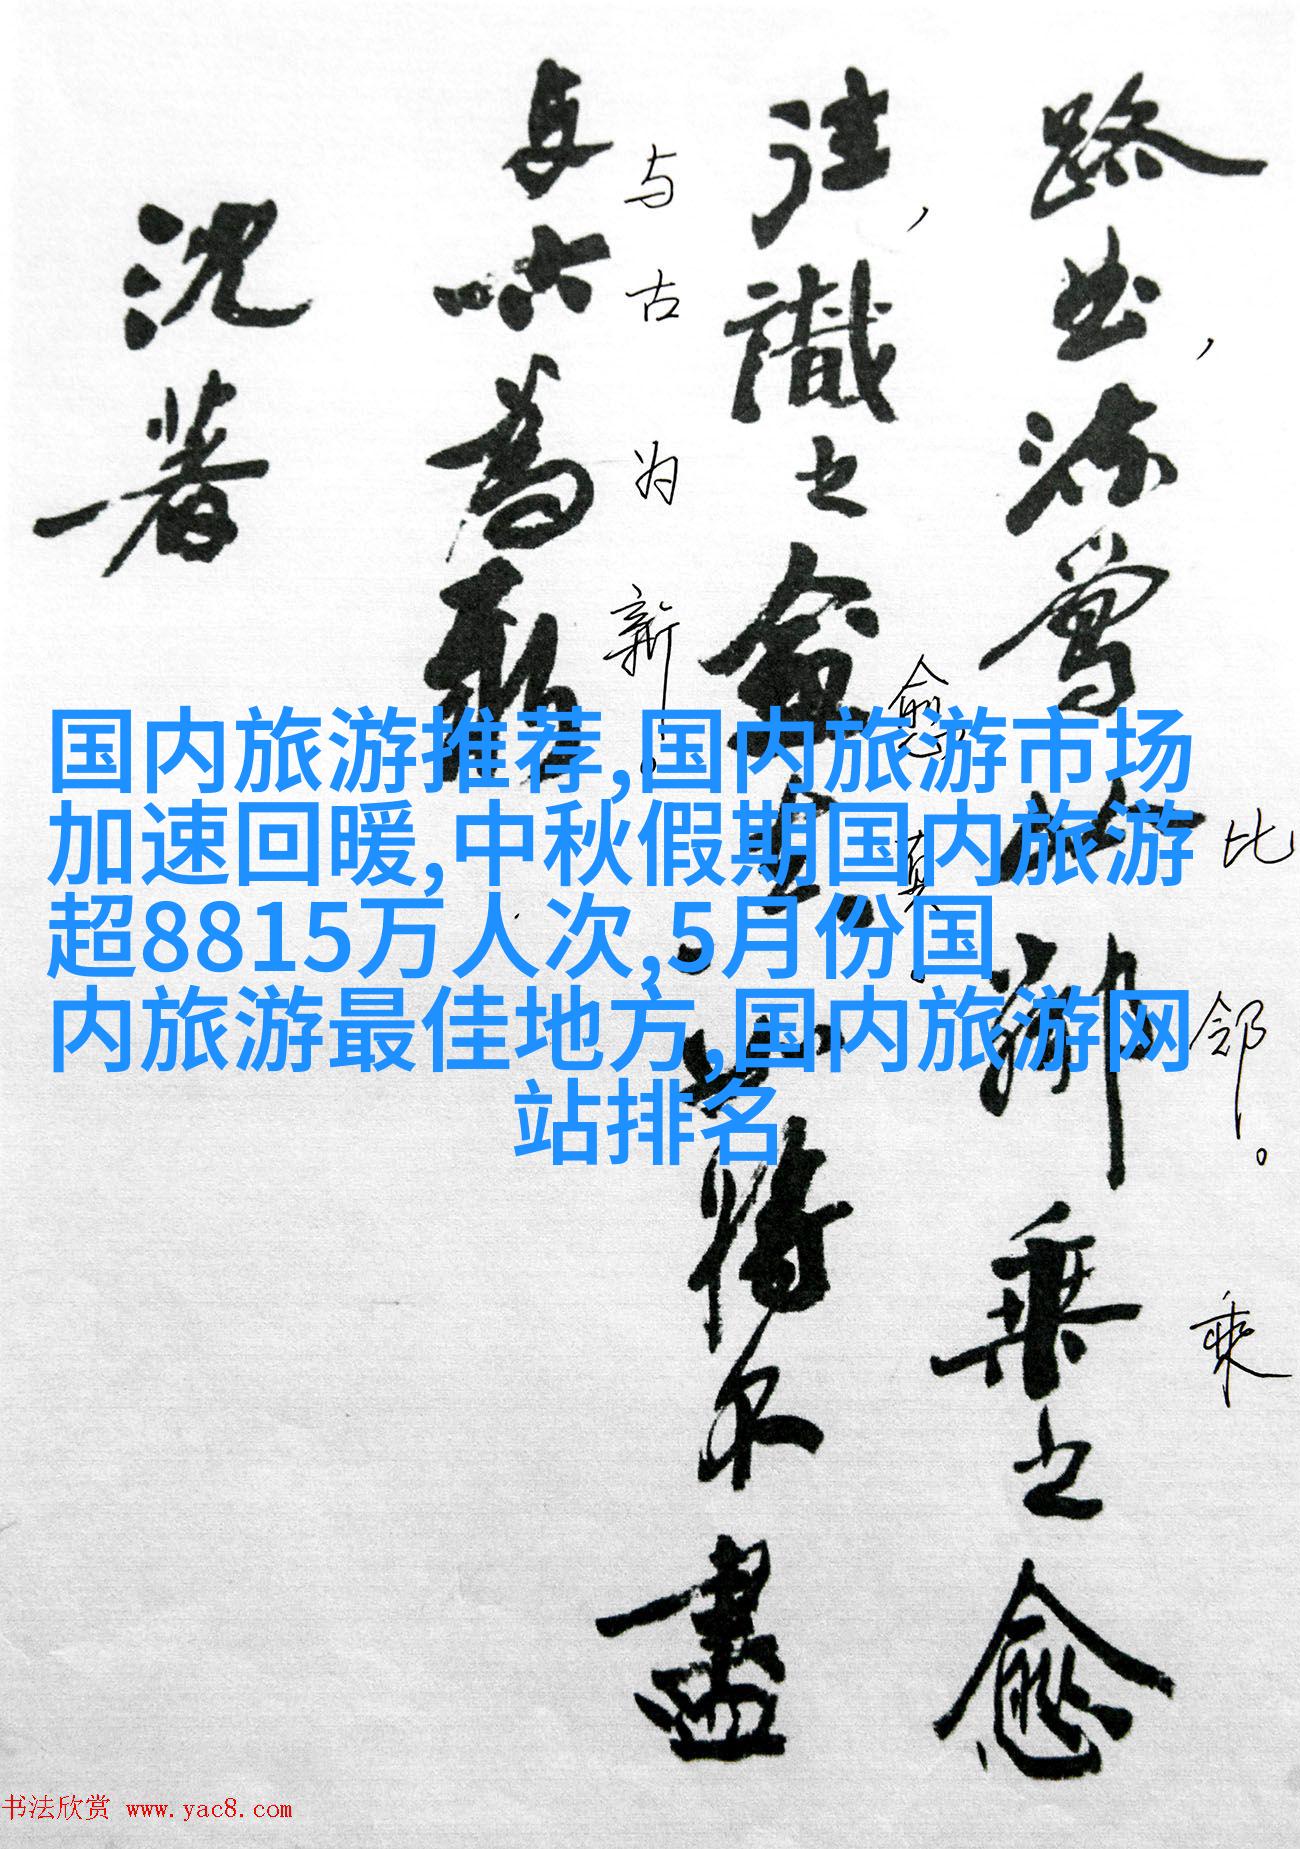 路曲流鶯比鄰乘之愈
比邻。乘
往識之愈真如將不盡
愈真。
与古為新
与古为新。
沈著
国内旅游推荐,国内旅游市场
加速回暖,中秋假期国内旅游
超8815万人次,5月份国
内旅游最佳地方,国内旅游网
站排名
书法欣赏 www.yac8.com